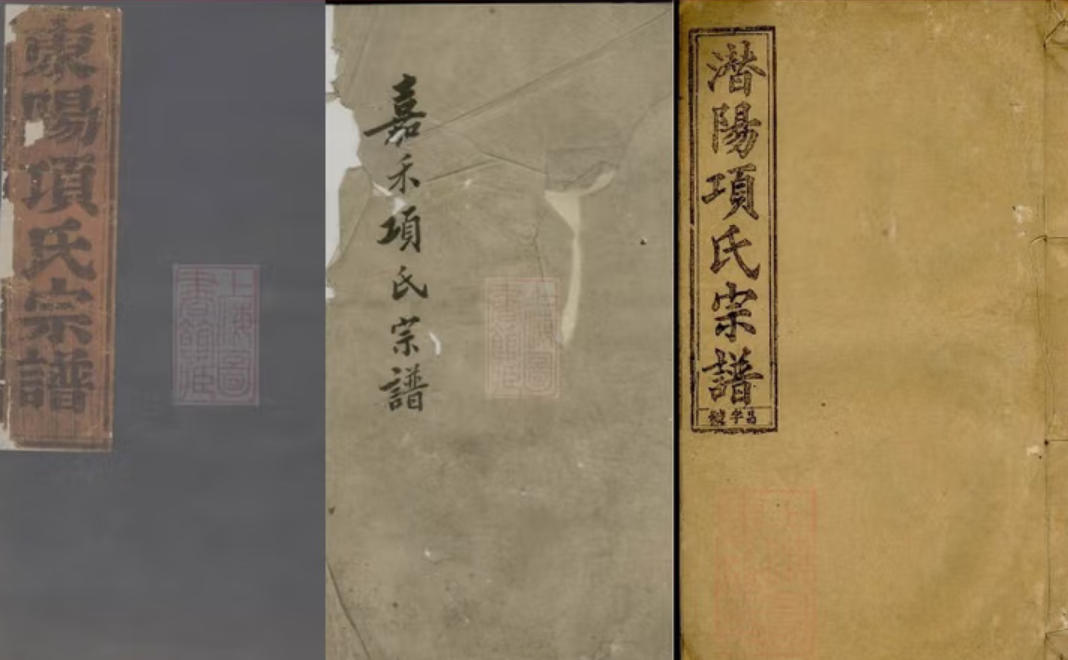 東陽項氏宗譜
上海圖書館藏
嘉禾項氏宗譜
上海圖書館藏
潛陽項氏宗譜